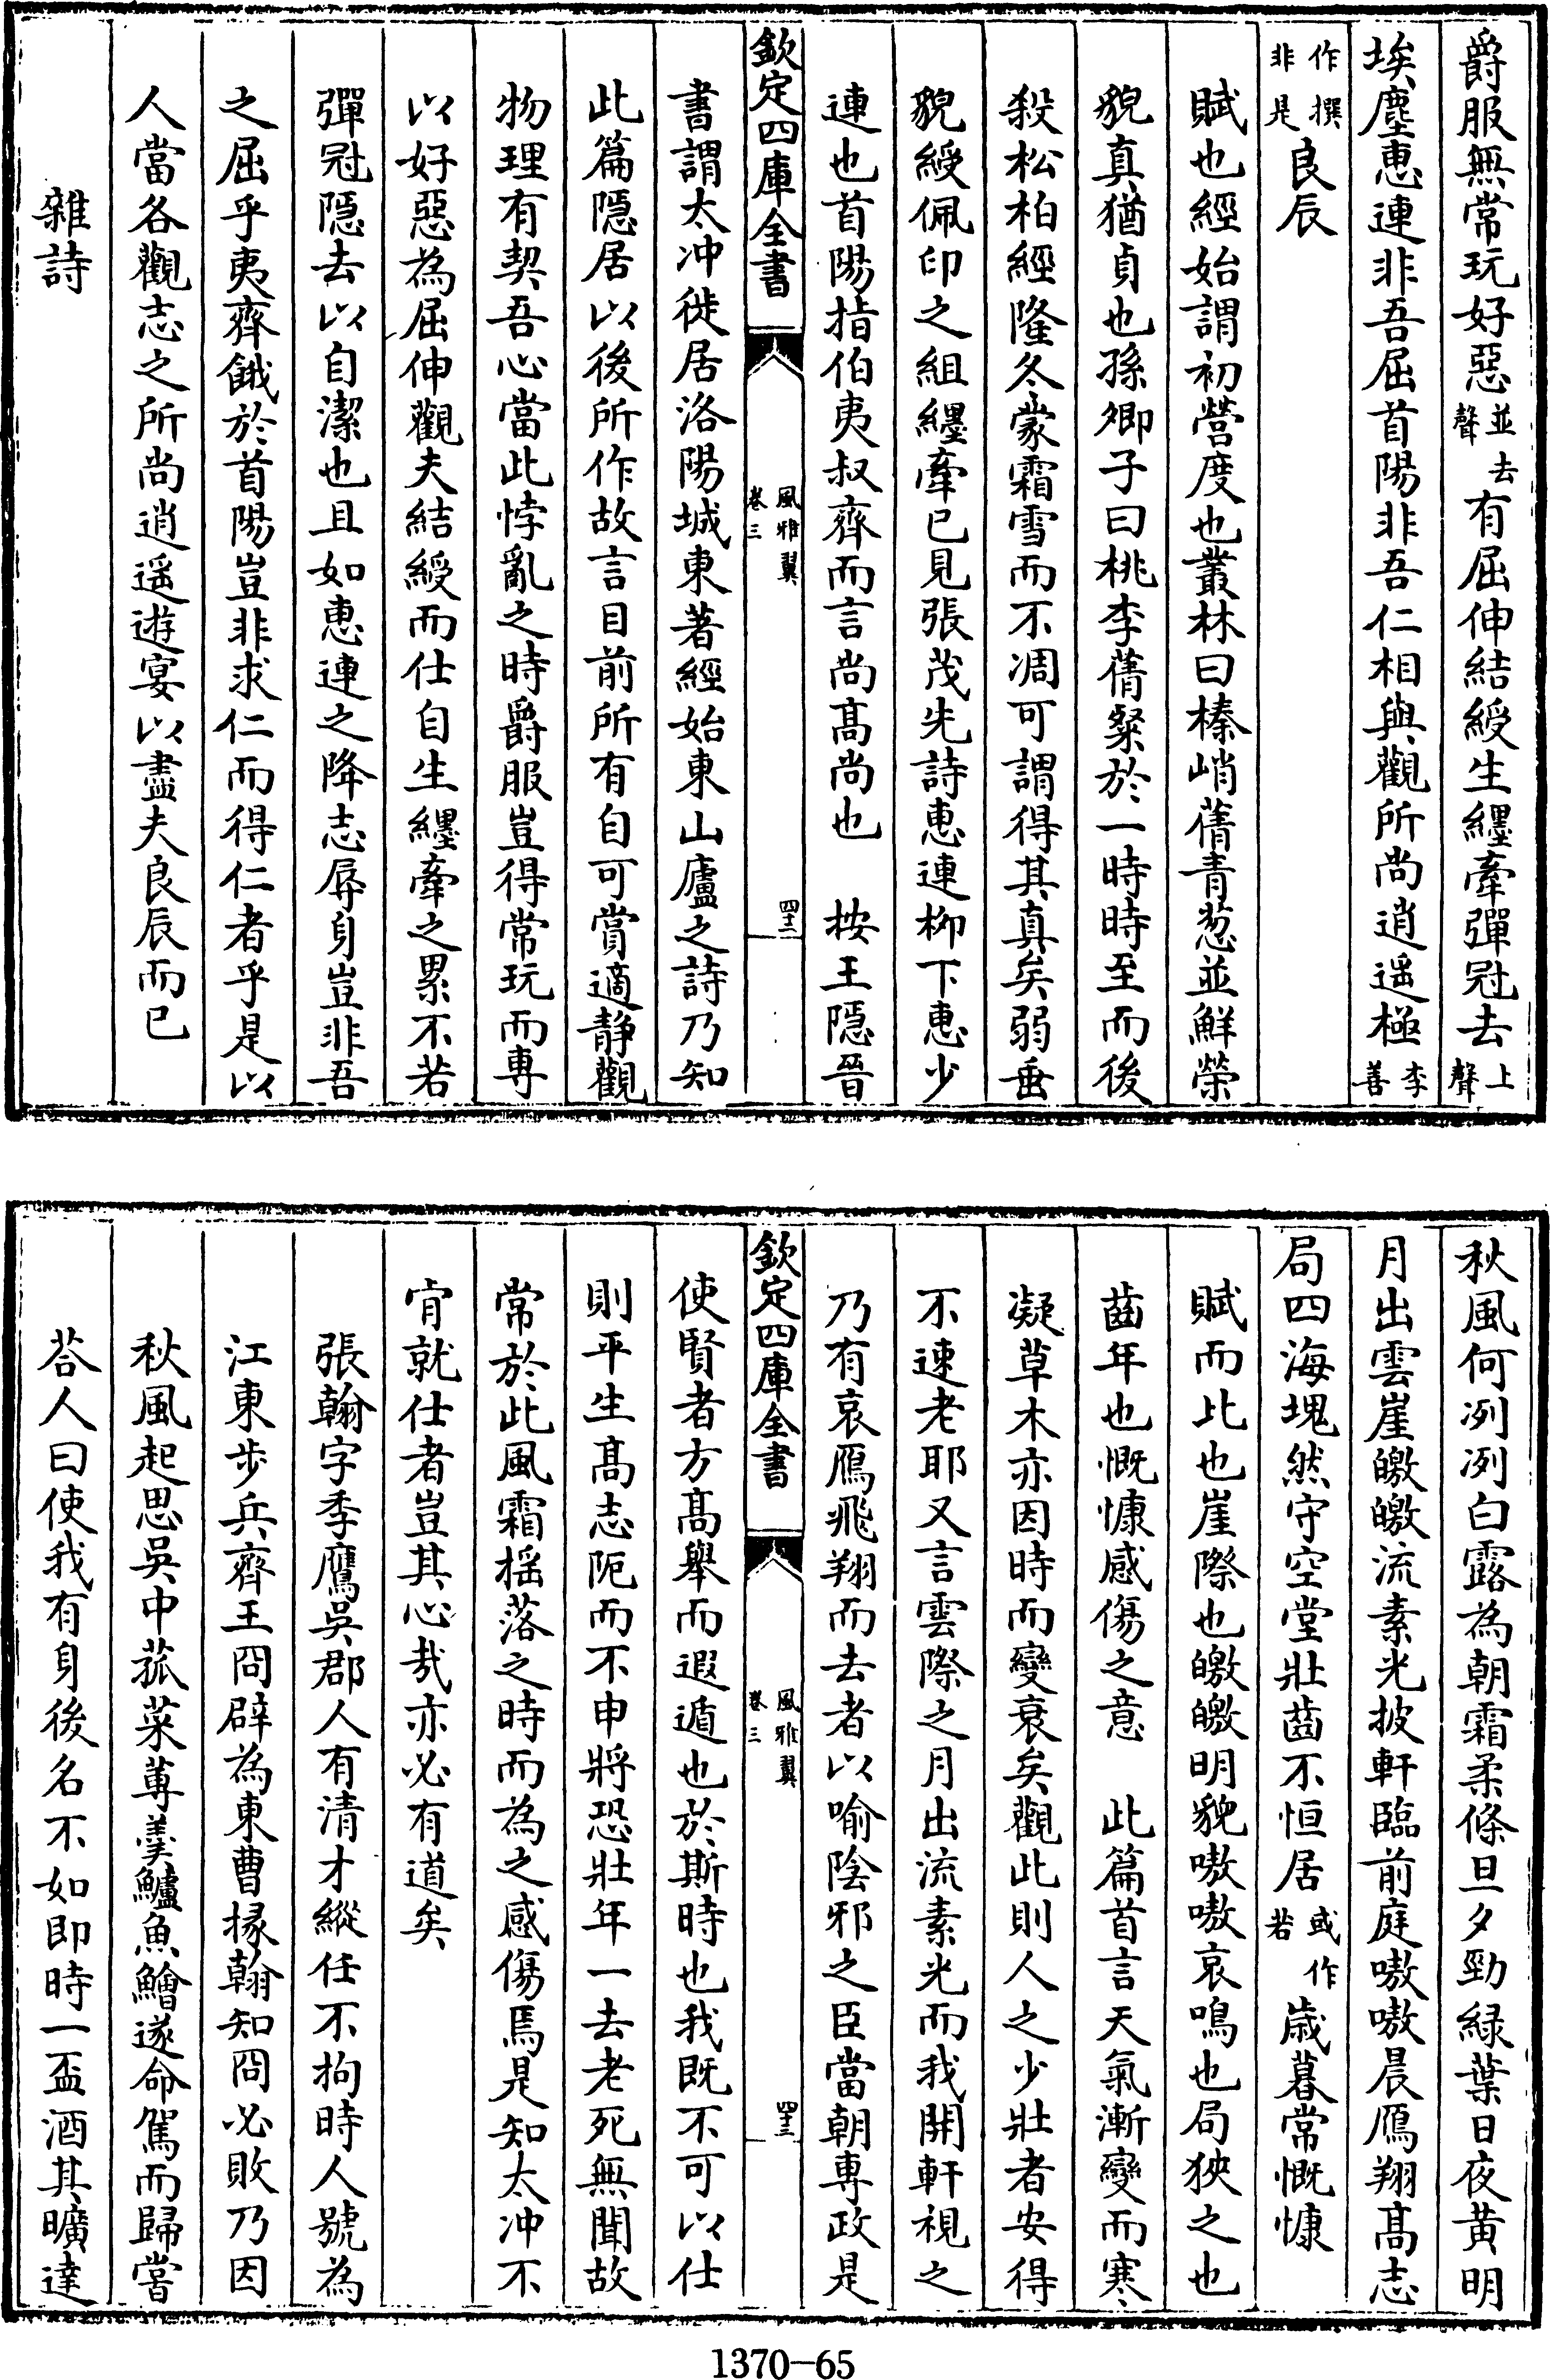 爵服無常玩好惡並去聲有屈伸結綬生纆牽彈冠去上聲
埃塵惠連非吾屈首陽非吾仁相與觀所尚逍遥極李善
作撰非是良辰
賦也經始謂初營度也叢林曰榛峭蒨青葱並鮮榮
貌真猶貞也孫卿子曰桃李蒨粲於一時時至而後
殺松柏經隆冬蒙霜雪而不凋可謂得其真矣弱垂
貌綬佩印之組纆牽已見張茂先詩惠連柳下惠少
連也首陽指伯夷叔齊而言尚髙尚也　按王隠晉
欽定四庫全書
風雅翼
卷三
四十二
書謂太冲徙居洛陽城東著經始東山廬之詩乃知
此篇隠居以後所作故言目前所有自可賞適静觀
物理有契吾心當此悖亂之時爵服豈得常玩而専
以好惡為屈伸觀夫結綬而仕自生纆牽之累不若
彈冠隠去以自潔也且如惠連之降志辱身豈非吾
之屈乎夷齊餓於首陽豈非求仁而得仁者乎是以
人當各觀志之所尚逍遥遊宴以盡夫良辰而已
雜詩
秋風何冽冽白露為朝霜柔條旦夕勁緑葉日夜黄明
月出雲崖皦皦流素光披軒臨前庭嗷嗷晨鴈翔髙志
局四海塊然守空堂壯齒不恒居或作若歲暮常慨慷
賦而比也崖際也皦皦明貌嗷嗷哀鳴也局狹之也
齒年也慨慷感傷之意　此篇首言天氣漸變而寒
凝草木亦因時而變衰矣觀此則人之少壯者安得
不速老耶又言雲際之月出流素光而我開軒視之
乃有哀鴈飛翔而去者以喻陰邪之臣當朝專政是
欽定四庫全書
風雅翼
卷三
四十三
使賢者方髙舉而遐遁也於斯時也我既不可以仕
則平生髙志阨而不申將恐壯年一去老死無聞故
常於此風霜揺落之時而為之感傷焉是知太冲不
肯就仕者豈其心哉亦必有道矣
張翰字季鷹吳郡人有清才縱任不拘時人號為
江東步兵齊王冏辟為東曹掾翰知冏必敗乃因
秋風起思吳中菰菜蓴羮鱸魚鱠遂命駕而歸嘗
荅人曰使我有身後名不如即時一盃酒其曠達
1370-65